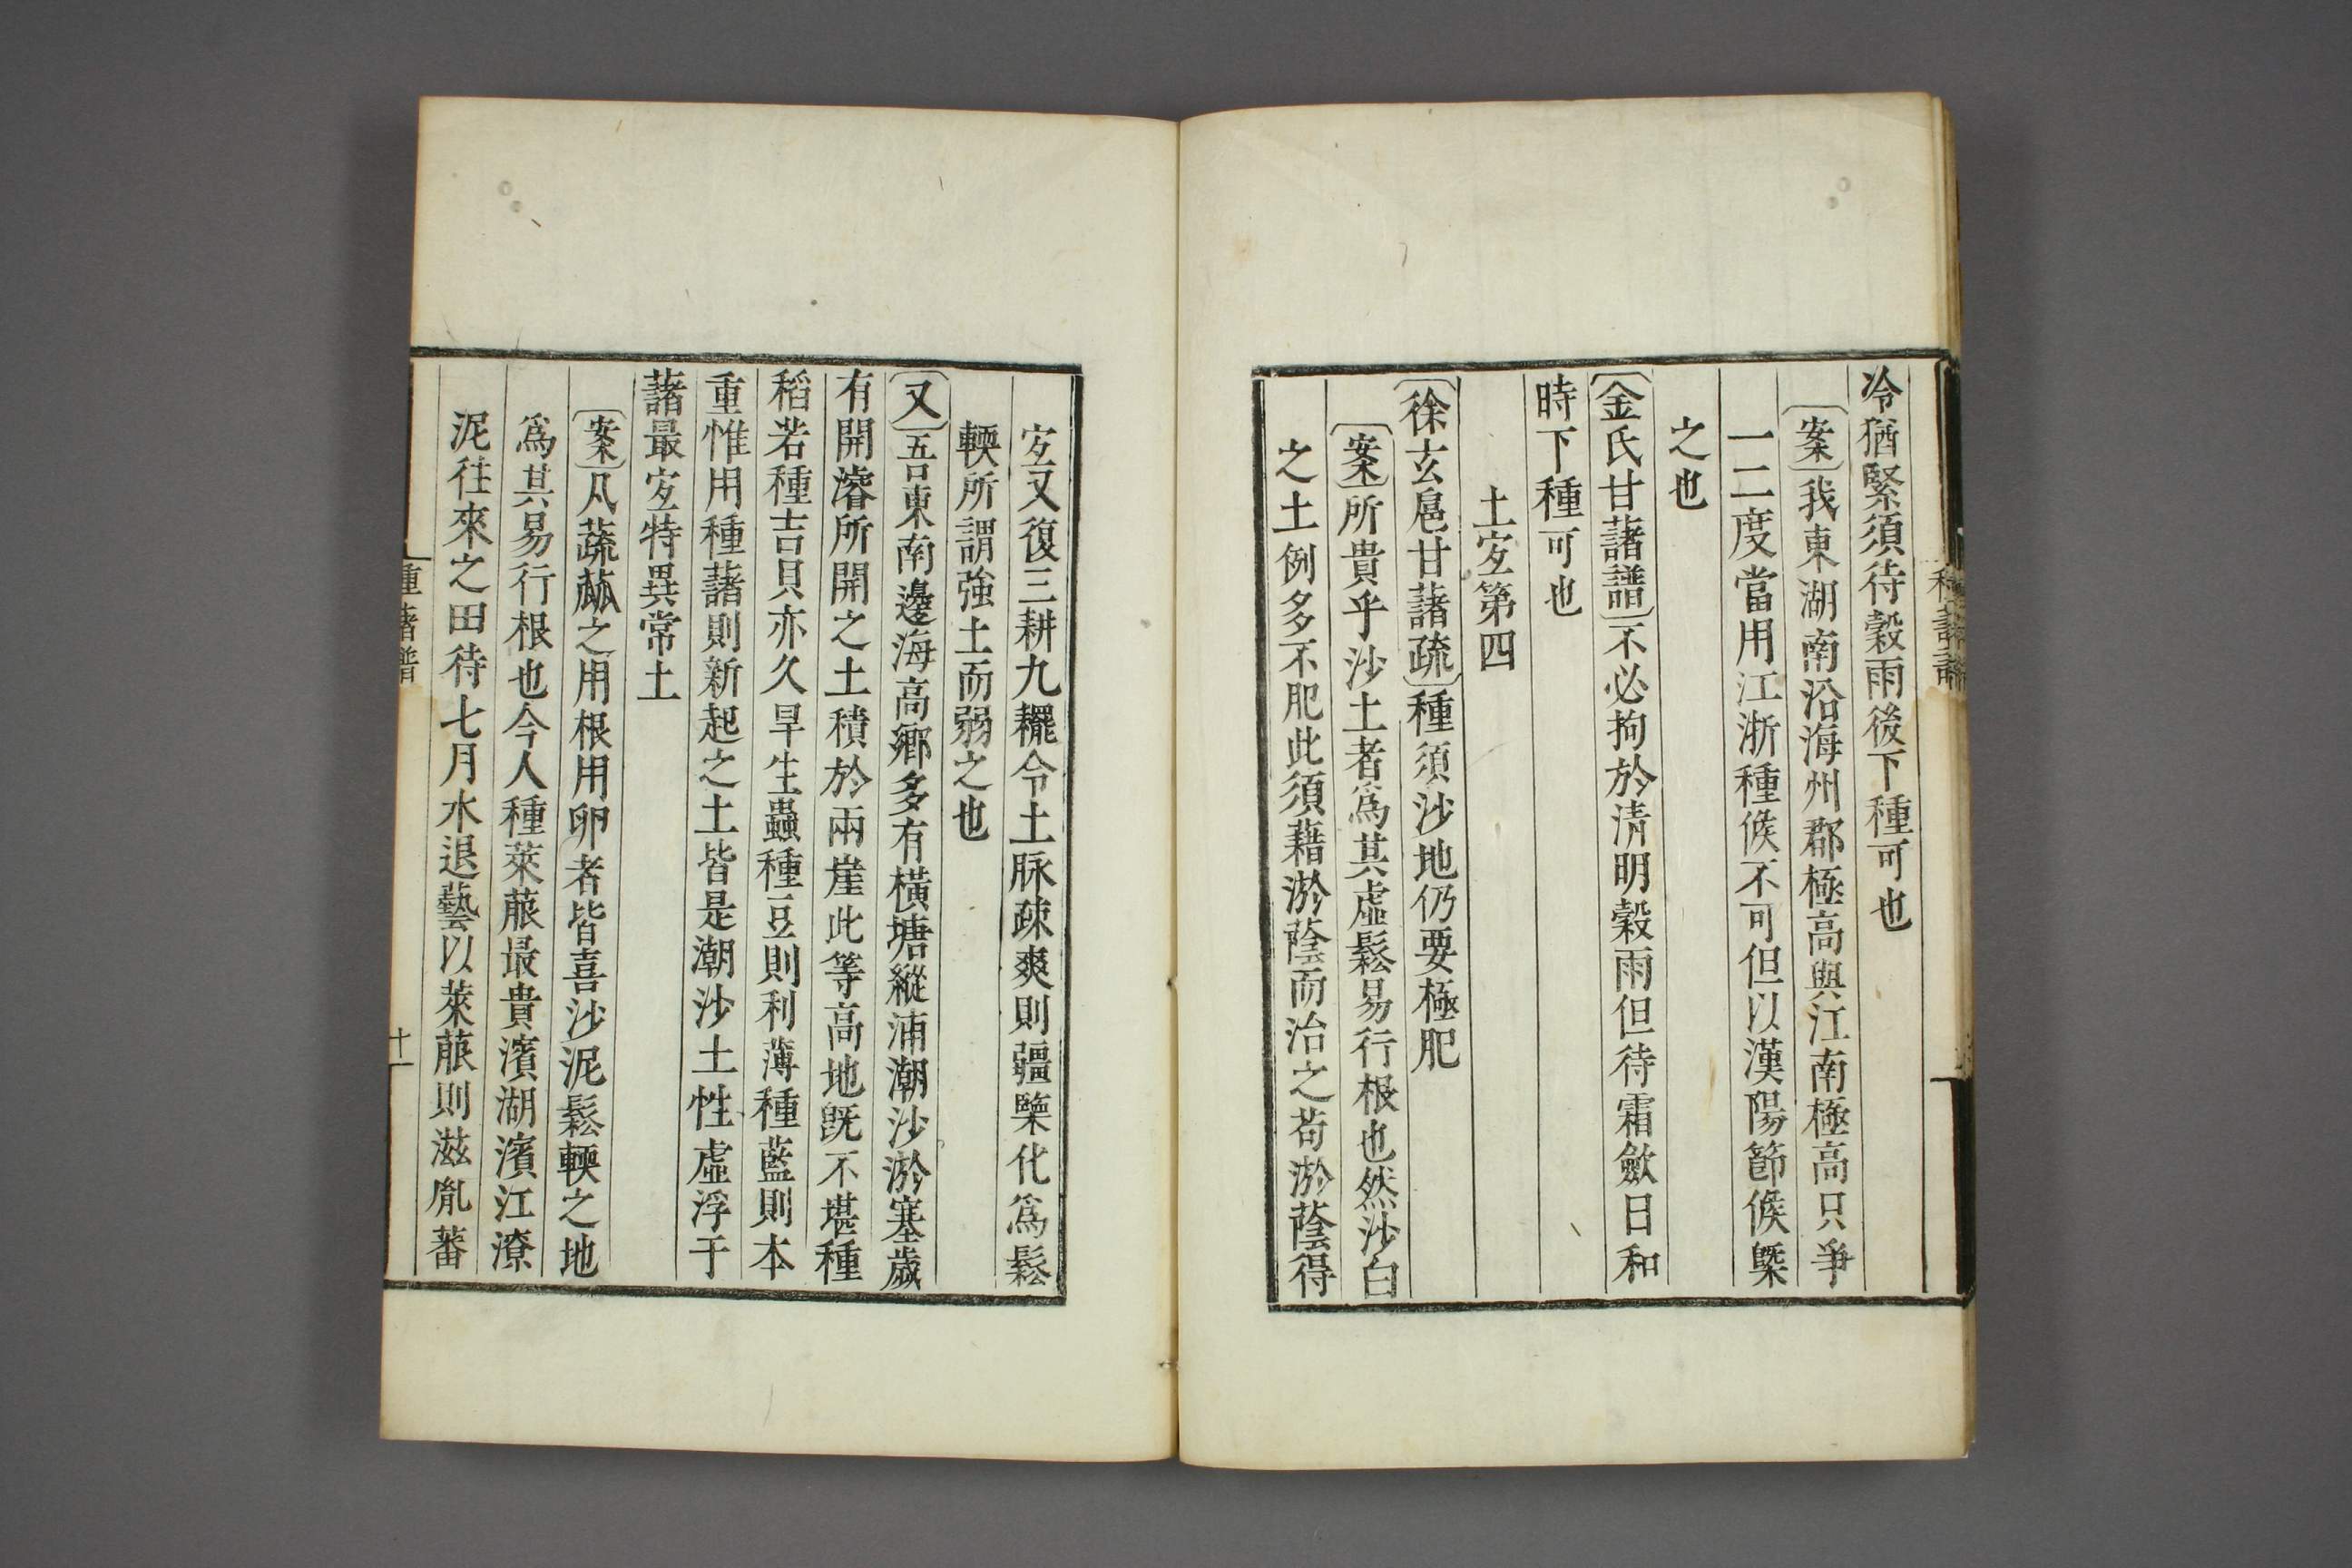 冷猶緊須待穀雨後下種可也
〔案〕我東湖南沿海州郡極高與江南極高只爭
一二度當用江浙種候不可但以漢陽節候槩
之也
〔金氏甘藷譜〕不必拘於清明穀雨但待霜斂日和
時下種可也
土宐第四
〔徐玄扈甘藷疏〕種須沙地仍要極肥
〔案〕所貴乎沙土者爲其虛鬆易行根也然沙白
之土例多不肥此須藉淤蔭而治之苟淤蔭得
宐又復三耕九䎱令土脉疎爽則疆㯺化爲鬆
輭所謂強土而弱之也
〔又〕吾東南邊海高鄉多有橫塘縱浦潮沙淤塞歲
有開濬所開之土積於兩崖此等高地旣不堪種
稻若種吉貝亦久旱生蟲種豆則利薄種藍則本
重惟用種藷則新起之土皆是潮沙土性虛浮于
藷最宐特異常土
〔案〕凡蔬蓏之用根用卵者皆喜沙泥鬆輭之地
爲其易行根也今人種萊菔最貴濱湖濱江潦
泥往來之田待七月水退藝以萊菔則滋胤蕃
種藷譜
十一